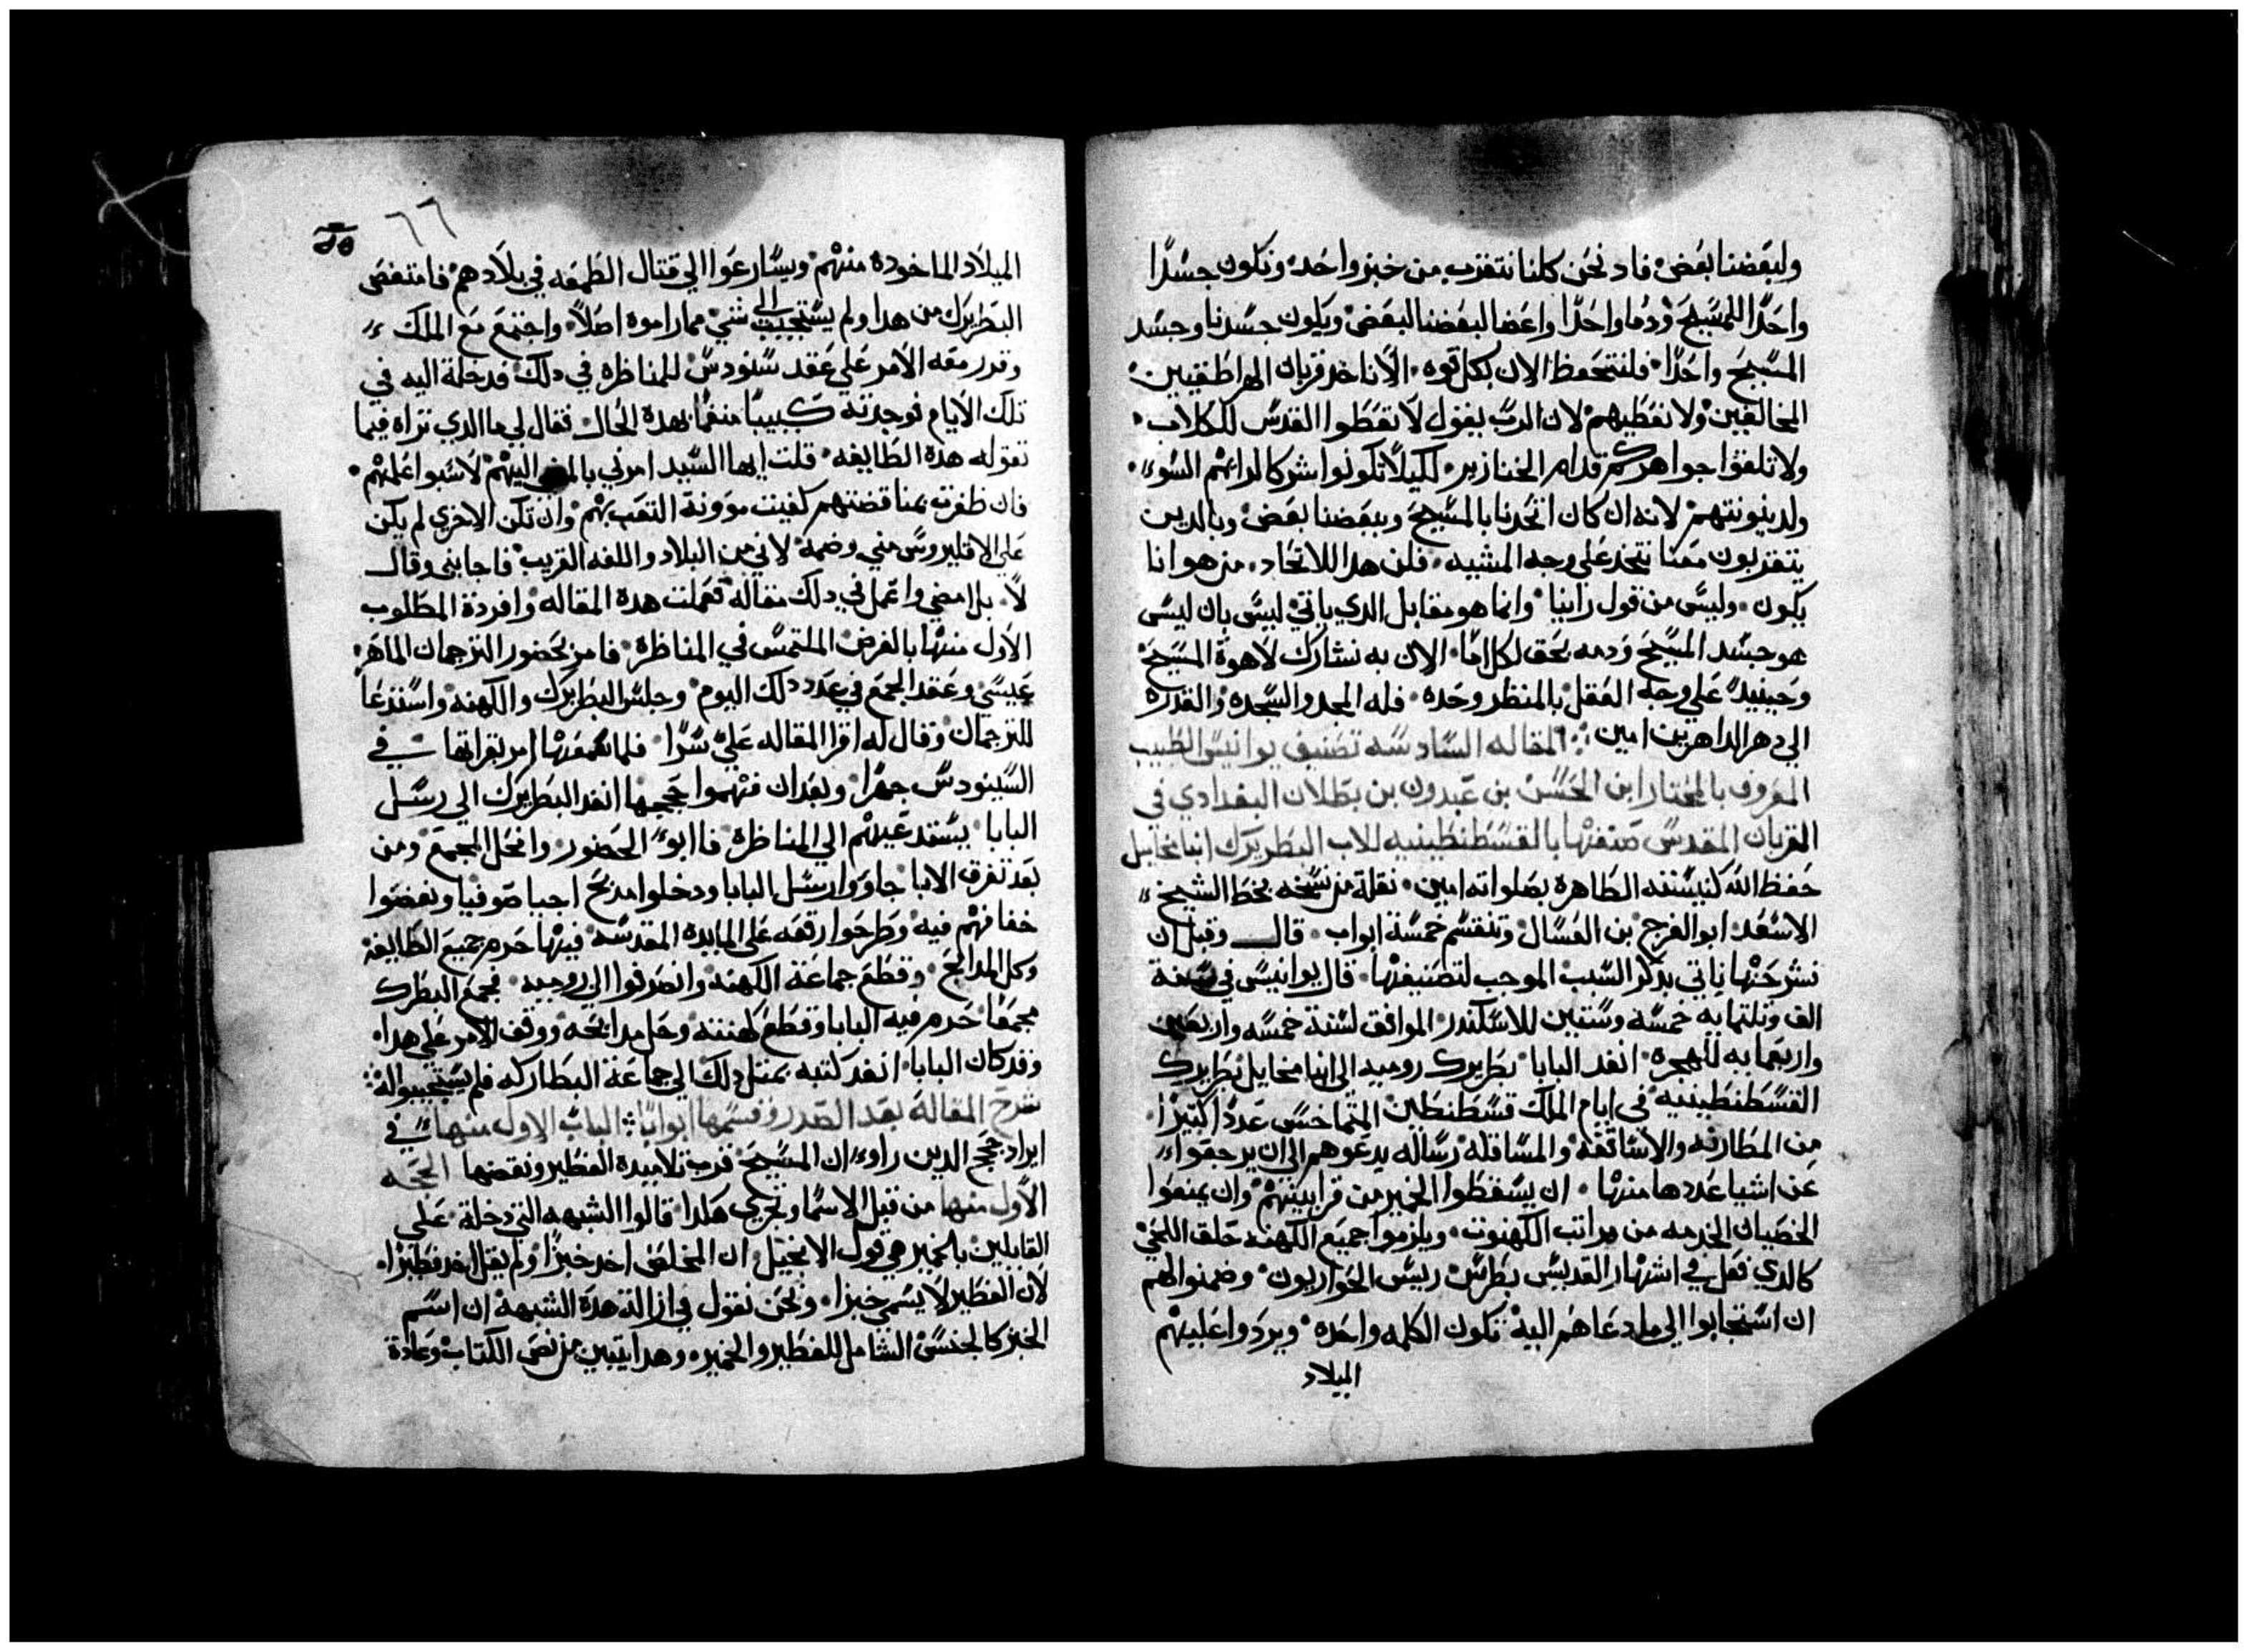 ولبعضنا بعض فاد نحن كلنا نتقرب من خبز واحد ونكون جسدًا
واحدًا للمسيح ودما واحدًا واعضا لبعضنا البعض ويكون جسدنا وجسد
المسيح واحدًا فلنتحفظ الان بكل قوه الا ناخد قربان الهراطقيين
المخالفين ولا نعطيهم لان الرب يقول لا تعطوا القدس للكلاب
ولا تلقوا جواهركم قدام الخنازير لكيلا تكونوا شركا لرايهم السوء
ولدينونتهم لانه ان كان اتحدنا بالمسيح وببعضنا بعض وبالدين
يتقربون معنا نتحد على وجه المشيه فلن هدا الاتحاد من هوانا
يكون وليس من قول راينا وانما هو مقابل الدي ياتي ليس بان ليس
هو جسد المسيح ودمه بحق لكل اما الان به نشارك لاهوة المسيح
وحينيد على وجه العقل بالمنظر وحده فله المجد والسجده والقدره
الي دهر الداهرين امين المقاله السادسه تصنيف يوانيس الطبيب
المعروف بالمختار ابن الحسن بن عبدون بن بطلان البغدادي في
القربان المقدس صنفها بالقسطنطينيه للاب البطريرك انبا مخايل
حفظ الله كنيسته الطاهره بصلواته امين نقلة من نسخه بخط الشيخ
الاسعد ابو الفرج بن العسال وتنقسم خمسة ابواب قال وقبل ان
نشرحها ناتي بدكر السبب الموجب لتصنيفها قال يوانيس في سنة
الف وتلتمايه خمسه وستين للاسكندر الموافق لسنة خمسه واربعين
واربعمايه للهجره انفد البابا بطريرك روميه الي انبا مخايل بطريرك
القسطنطينيه في ايام الملك قسطنطين المتماخس عددا كتيرا
من المطارنه والاساقفه والمساقله رساله يدعوهم الي ان يرجعوا
عن اشيا عددها منها ان يسقطوا الخمير من قرابينهم وان يمنعوا
الخصيان الخدمه من مراتب الكهنوت ويلزموا جميع الكهنه حلق اللحي
كالدي فعل في اشهار القديس بطرس رييس الحواريون وضمنوا لهم
ان استجابوا الي ما دعاهم اليه تكون الكلمه واحده ويردوا عليهم
الميلاد
٦٦
الميلاد الماخوده منهم ويسارعوا الي قتال الطمغه في بلادهم فامتعض
البطريرك من هدا ولم يستجيب الي شي مما راموة اصلا واجتمع مع الملك
وقرر معه الامر علي عقد سنودس للمناظره في دلك فدخلة اليه في
تلك الايام فوجدته كييبا منغما بهده الحال فقال لي ما الدي تراه فيما
تقوله هده الطايفه قلت ايها السيد امرني بالمضي اليهم لاسبوا علمهم
فان ظفرت بمناقضتهم كفيت موونة التعب بهم وان تكن الاخري لم يكن
علي الاقليروس مني وضمة لاني من البلاد واللغه القريب فاجابني وقال
لا بل امضي واعمل في دلك مقاله فعملت هده المقاله وافردة المطلوب
الاول منها بالغرض الملتمس في المناظرة فامر بحضور الترجمان الماهر
عيسي وعقد المجمع في غد دلك اليوم وجلس البطريرك والكهنه واستدعا
للترجمان وقال له اقرا المقاله علي سرا فلما سمعها امر بقراتها في
السينودس جهرا وبعد ان فهموا حججها انفد البطريرك الي رسل
البابا يستدعيهم الي المناظرة فابوا الحضور وانحل المجمع ومن
بعد تفرق الابا جاووا رسل البابا ودخلوا مدبح اجيا صوفيا ونفضوا
خفافهم فيه وطرحوا رقعه علي المايده المقدسه فيها حرم جميع الطايفه
وكل المدابح وقطع جماعة الكهنه وانصرفوا الي روميه فجمع البطرك
مجمعا حرم فيه البابا وقطع كهنته وحل مدابحه ووقف الامر علي هدا
وقد كان البابا انفد كتبه بمتل دلك الي جماعة البطاركه فلم يستجيبوا له
شرح المقالة بعد الصدر وقسمها ابوابا الباب الاول منها في
ايراد حجج الدين راوا ان المسيح قرب تلاميدة الفطير ونقضها الحجه
الاول منها من قبل الاسما وتجري هكدا قالوا الشبهه التي دخلة علي
القايلين بالخمير هي قول الانجيل ان المخلص اخد خبزا ولم يقل اخد فطيرا
لان الفطير لا يسمي خبزا ونحن نقول في ازالة هدة الشبهة ان اسم
الخبز كالجنس الشامل للفطير والخمير وهدا يتبين من نص الكتاب وعادة